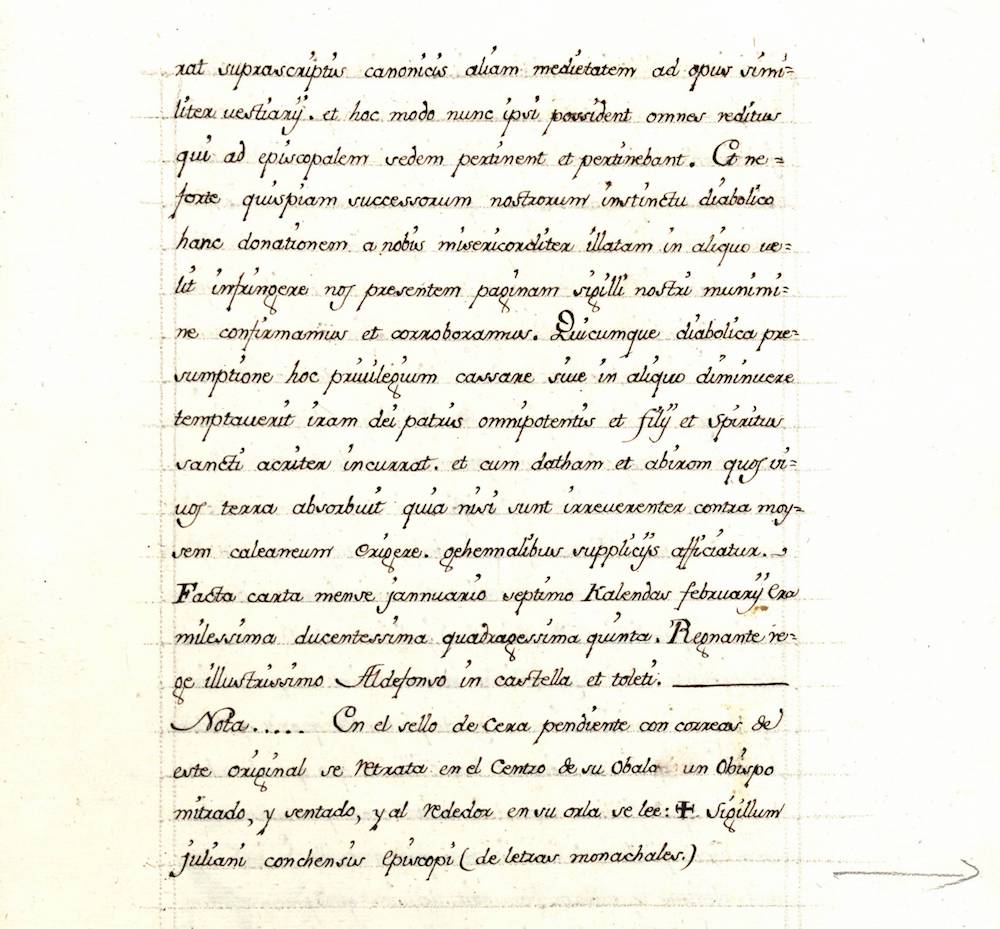 rat suprascriptis canonicis aliam medietatem ad opus simi=
liter vestiarij. et hoc modo nunc ipsi possident omnes reditus
qui ad episcopalem sedem pertinent et pertinebant. Et ne=
forte quispiam successorum nostrorum instinctu diabolico
hanc donationem a nobis misericorditer illatam in aliquo ve=
lit infringere nos presentem paginam sigilli nostri munimi=
ne confirmamus et corroboramus. Quicumque diabolica pre=
sumptione hoc priuilegium cassare siue in aliquo diminuere
temptauerit iram dei patris omnipotentis et filij et Spiritus
sancti acriter incurrat. et cum datham et abirom quos vi=
uos terra absorbuit quia nisi sunt irreuerenter contra moy=
sem caleaneum erigere. gehennalibus supplicijs afficiatur.
Facta carta mense jannuario septimo Kalendas februarij Era
milessima ducentessima quadragessima quinta. Regnante re=
ge illustrissimo Aldefonso in castella et toleti.
Nota..... En el sello de Cera pendiente con correas de
este original se retrata en el Centro de su Obalo un Obispo
mitrado, y sentado, y al rededor en su orla se lee: ✠ Sigillum
juliani conchensis Episcopi (de letras monachales.)